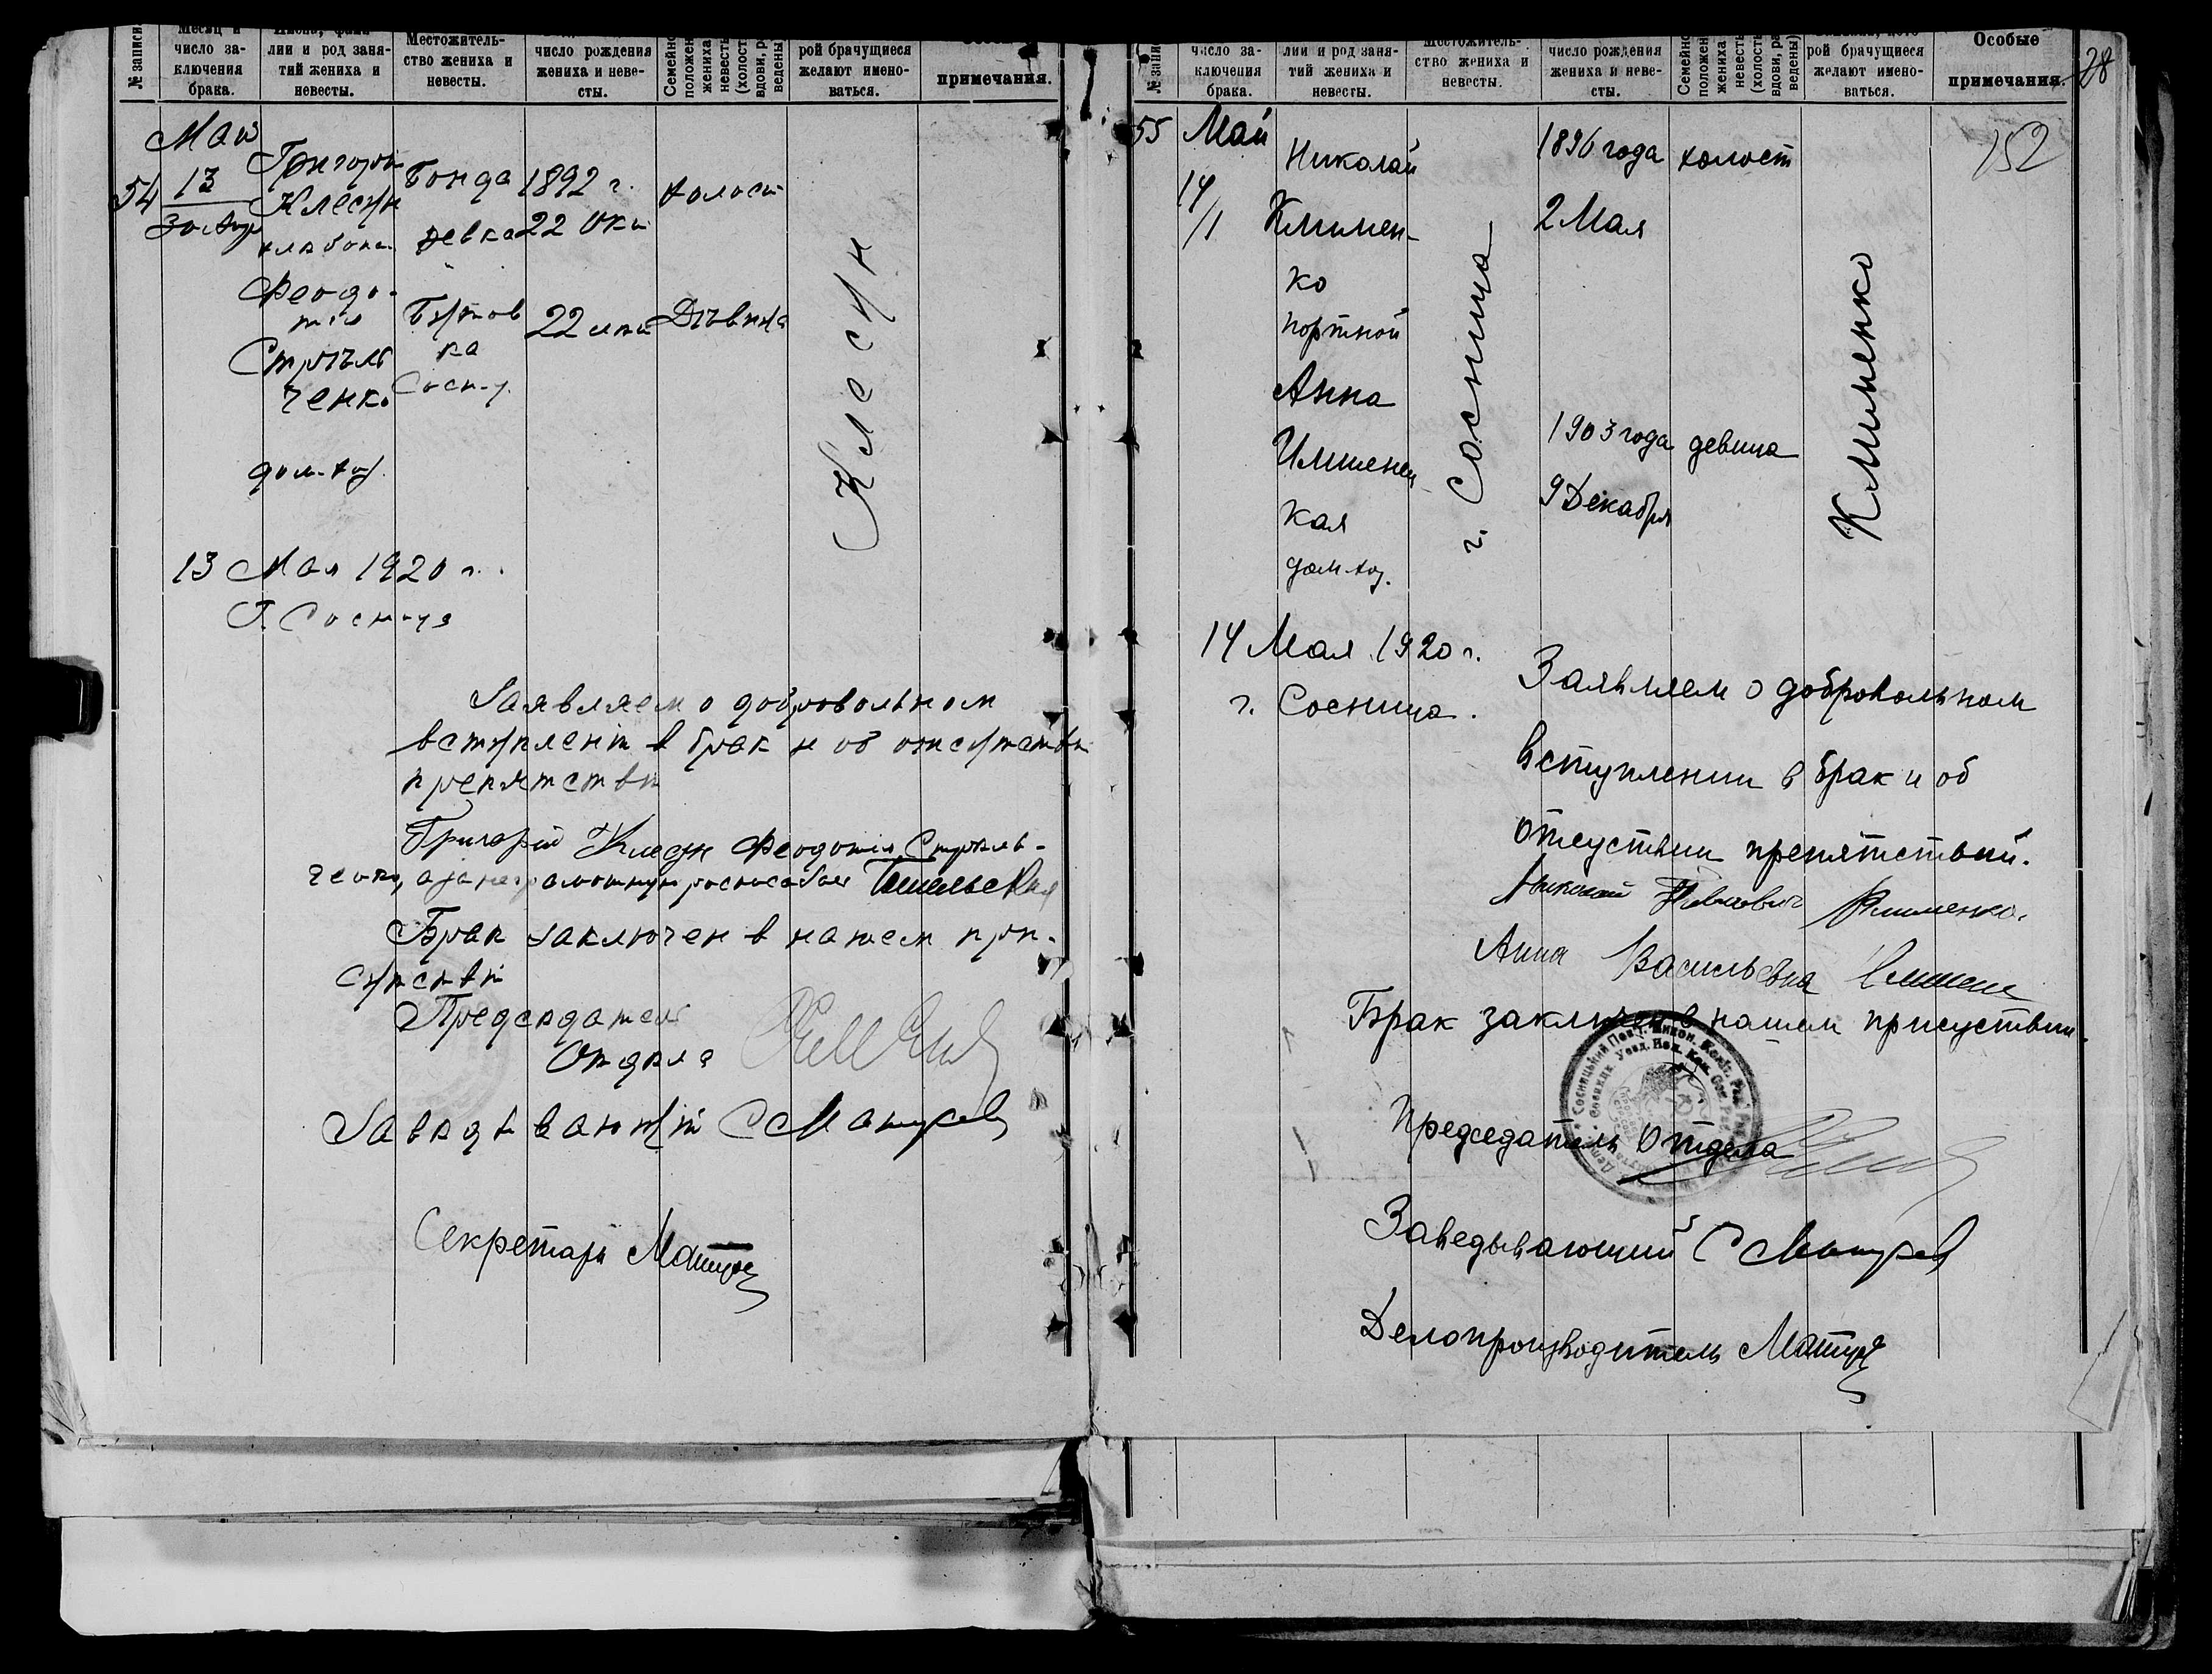 № записи
Месяц и
число за-
ключения
брака.
Имена, фами-
лии и род заня-
тий жениха и
невесты.
Местожитель-
ство жениха и
невесты.
число рождения
жениха и неве-
сты.
Семейно
положен
жениха
невесть
(холост
вдови, р
ведены)
рой брачущиеся
желают имено-
ваться.
примечания.
54
Маю
13
30 Апр
Григорій
Клесун
хлебопа.
Бонда
ревка
1892 г.
22 Окт
холост
Феодо-
тія
Стрѣль
ченко
дом. хоз.
Бутов
ка
Сосн. у.
22 лет
Дѣвица
Клесун
13 Мая 1920 г.
Г. Сосница
Заявляем о добровольном
вступленіи в брак и об отсутствіи
препятствій
Григорій Клесун Феодотія Стрѣль-
ченко, а за неграмотную росписалась
Брак заключен в нашем при-
сутствіи
Председатель
Отдѣла
Завѣдывающій С Мацуев
Секретарь
№ запис
число за-
ключения
брака.
лии и род заня-
тий жениха и
невесты.
Местожитель-
ство жениха и
невесты.
число рождения
жениха и неве-
сты.
Семейно
положен
жениха
невесть
(холость
вдови, ра
ведены)
рой брачущиеся
желают имено-
ваться.
Особые
примечания.
28
152
55
Май
14
/1
Николай
Климен-
ко
портной
Анна
Илшенец
кая
дом. хоз.
г. Сосница
1896 года
2 Мая
холост
1903 года
9 Декабря
девица
Клименко
14 Мая 1920 г.
г. Сосница.
Заявляем о добровольном
вступлении в брак и об
отсуствии препятствий.
Николай Павлович Клименко.
Анна Васильевна
Брак заключен в нашем присуствии.
Председатель Отдела
Заведывающий С Мацуев
Делопроизводитель